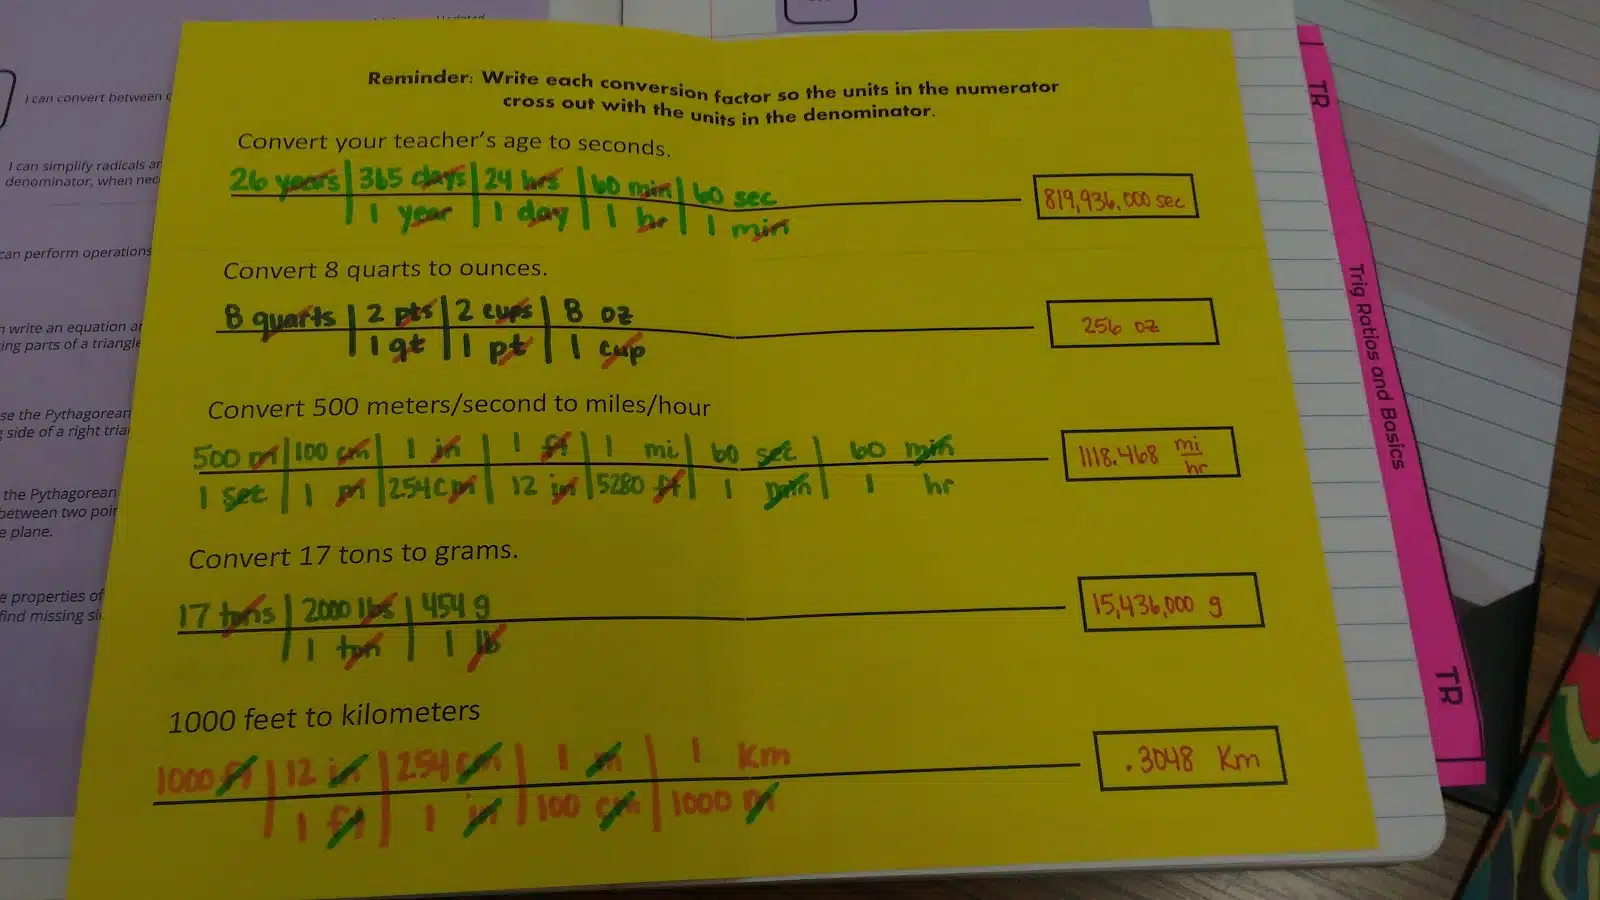 Updated
I can convert between
I can simplify radicals
denominator, when
can perform operations
write an equation
ing parts of a triangle
se the Pythagorean
side of a right
the Pythagorean
between two
e plane.
e properties of
find missing
Reminder: Write each conversion factor so the units in the numerator
cross out with the units in the denominator.
Convert your teacher's age to seconds.
26 years | 365 days | 24 hrs | 60 min | 60 sec
1 year | 1 day | 1 hr | 1 min
819,936,000 sec
Convert 8 quarts to ounces.
8 quarts | 2 pts | 2 cups | 8 oz
1 qt | 1 pt | 1 cup
256 oz
Convert 500 meters/second to miles/hour
500 m | 100 cm | 1 in | 1 ft | 1 mi | 60 sec | 60 min
1 sec | 1 m | 254 cm | 12 in | 5280 ft | 1 min | 1 hr
1118.468 mi
hr
Convert 17 tons to grams.
17 tons | 2000 lbs | 454 g
1 ton | 1 lb
15,436,000 g
1000 feet to kilometers
1000 ft | 12 in | 254 cm | 1 m | 1 Km
1 ft | 1 in | 100 cm | 1000 m
.3048 Km
TR
Trig Ratios and Basics
TR